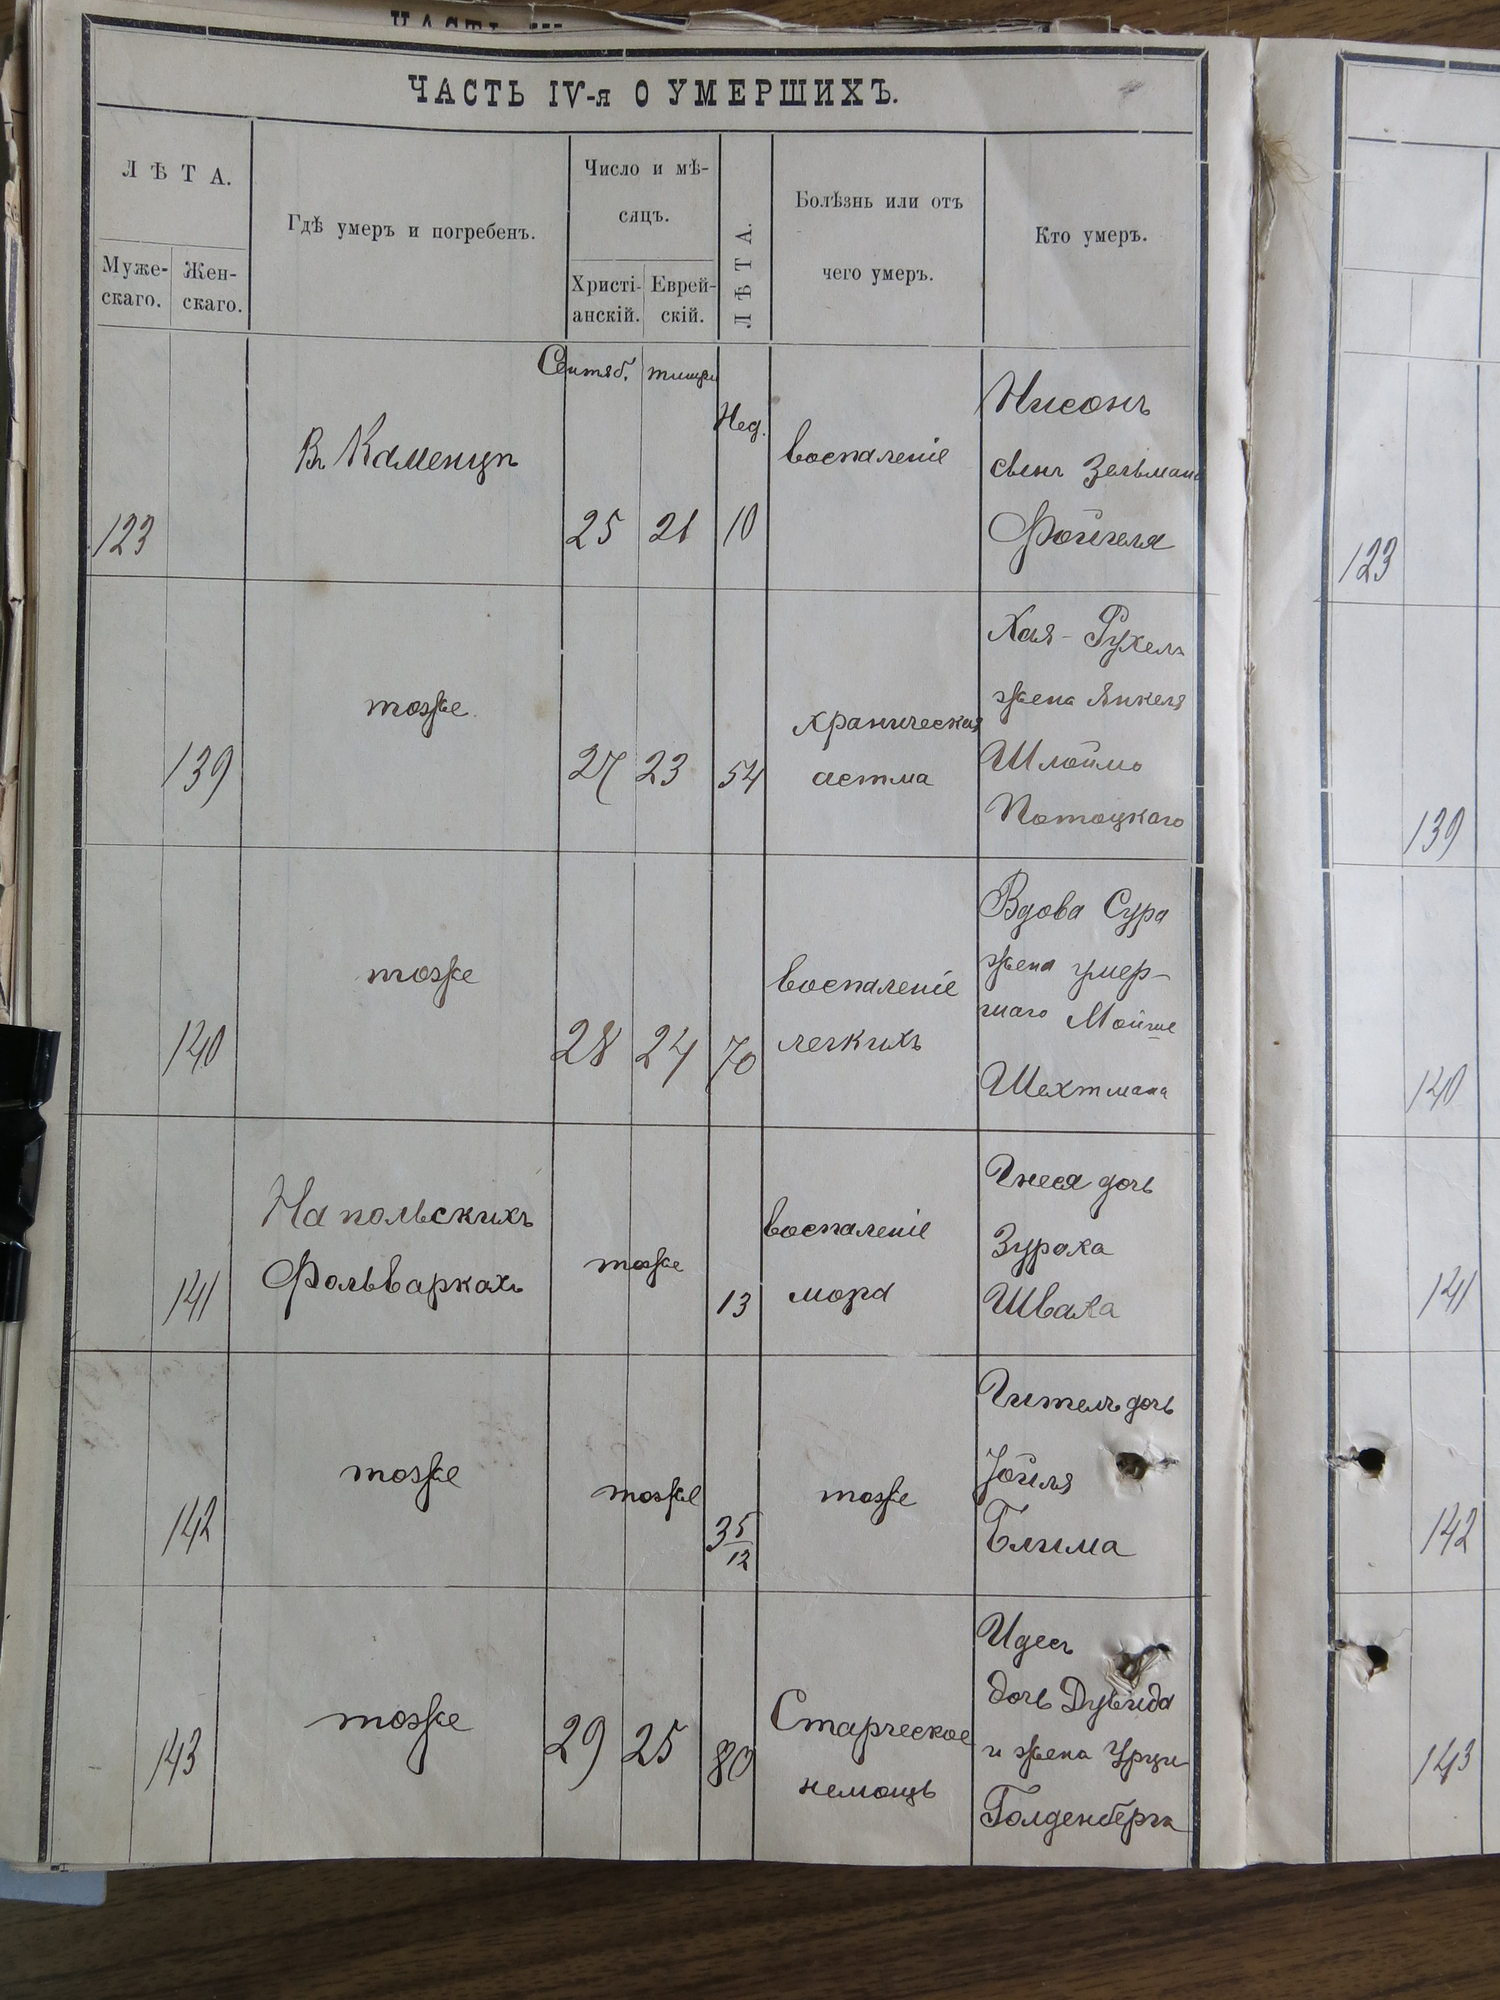 ЧАСТЬ IV-я О УМЕРШИХЪ.
ЛѢТА.
Муже-
скаго.
Жен-
скаго.
Гдѣ умеръ и погребенъ.
Число и мѣ-
сяцъ.
Христі-
анскій.
Еврей-
скій.
ЛѢТА.
Болѣзнь или отъ
чего умеръ.
Кто умеръ.
Сентяб. тишри
Нед.
123
Въ Каменцѣ
25 21 10
воспаленіе
Нисонъ
сынъ Зельмана
Фойгеля
123
139
тоже
27 23 54
храническая
астма
Хая-Рухель
жена Янкеля
Шлоймо
Потоцкаго
139
140
тоже
28 24 70
воспаленіе
легкихъ
Вдова Сура
жена умер-
шаго Мойше
Шехтмана
140
141
На польскихъ
Фольваркахъ
тоже
13
воспаленіе
мозга
Гнеся дочь
Зураха
Шваха
141
142
тоже
тоже
3 5/12
тоже
Гитель дочь
Іойля
Блима
142
143
тоже
29 25 80
Старческое
немощь
Идесъ
дочь Дувида
и жена Урци
Голденберга
143